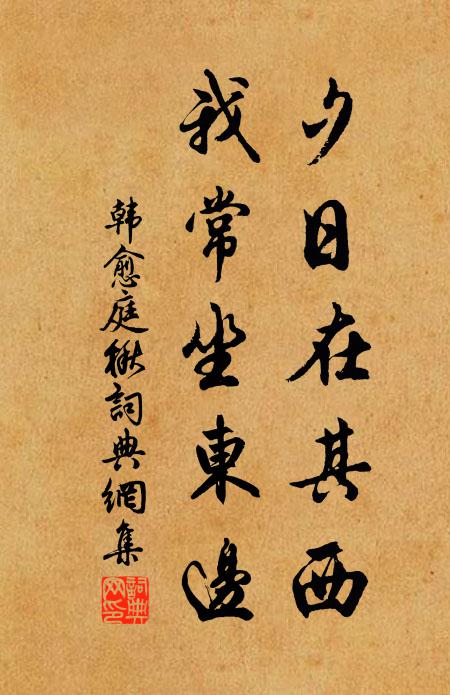 夕日在其西
我常坐東邊
韩愈庭楸詞典網集
詞典網印